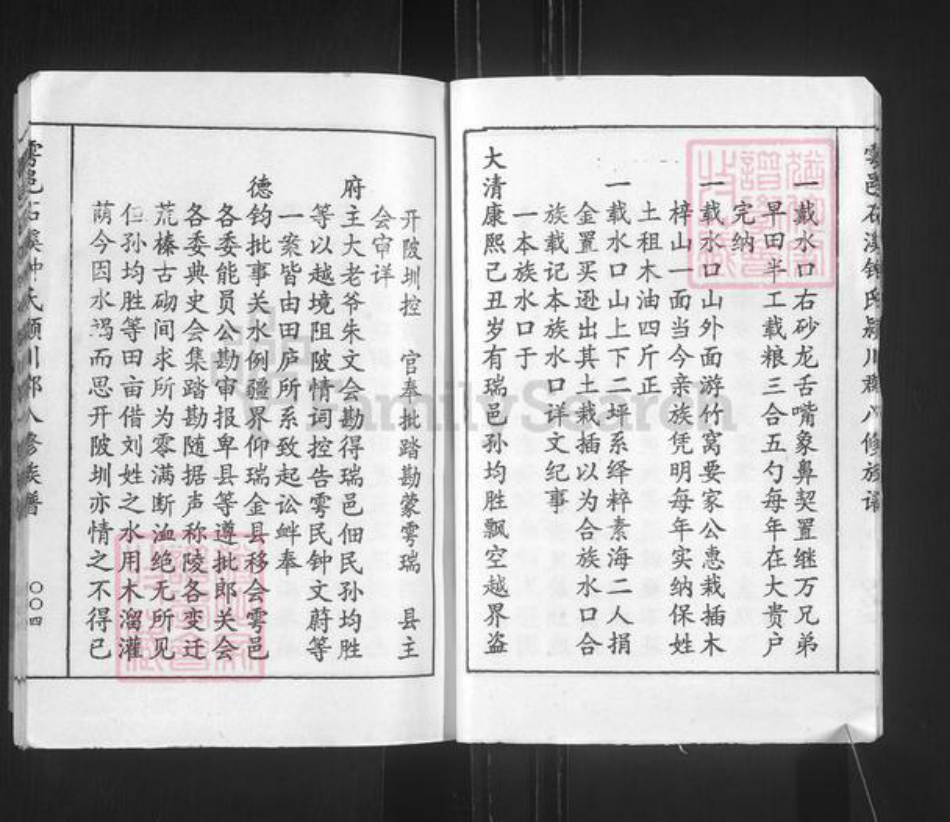 一戴水口右砂龙舌嘴象鼻契置继万兄弟
早田半工载粮三合五勺每年在大贵户
完纳
一载水口山外面游竹窝要家公惠栽插木
梓山一面当今亲族凭明每年实纳保姓
土租木油四斤正
一载水口山上下二坪系绎粹素海二人捐
金置买逊出其土栽插以为合族水口合
族载记本族水口详文纪事
一本族水口于
大清康熙己丑岁有瑞邑孙均胜飘空越界盗
开陂圳控 官奉批踏勘蒙雩瑞 县主
会审详
府主大老爷朱文会勘得瑞邑佃民孙均胜
等以越境阻陂情词控告雩民钟文蔚等
一案皆由田庐所系致起讼衅奉
德钧批事关水例疆界仰瑞金县移会雩邑
各委能员公勘审报卑县等遵批郎关会
各委典史会集踏勘随据声称陵各变迁
荒榛古砌间求所为零满断洫绝无所见
但孙均胜等田亩借刘姓之水用木溜灌
荫今因水竭而思开陂圳亦情之不得已
〇〇四